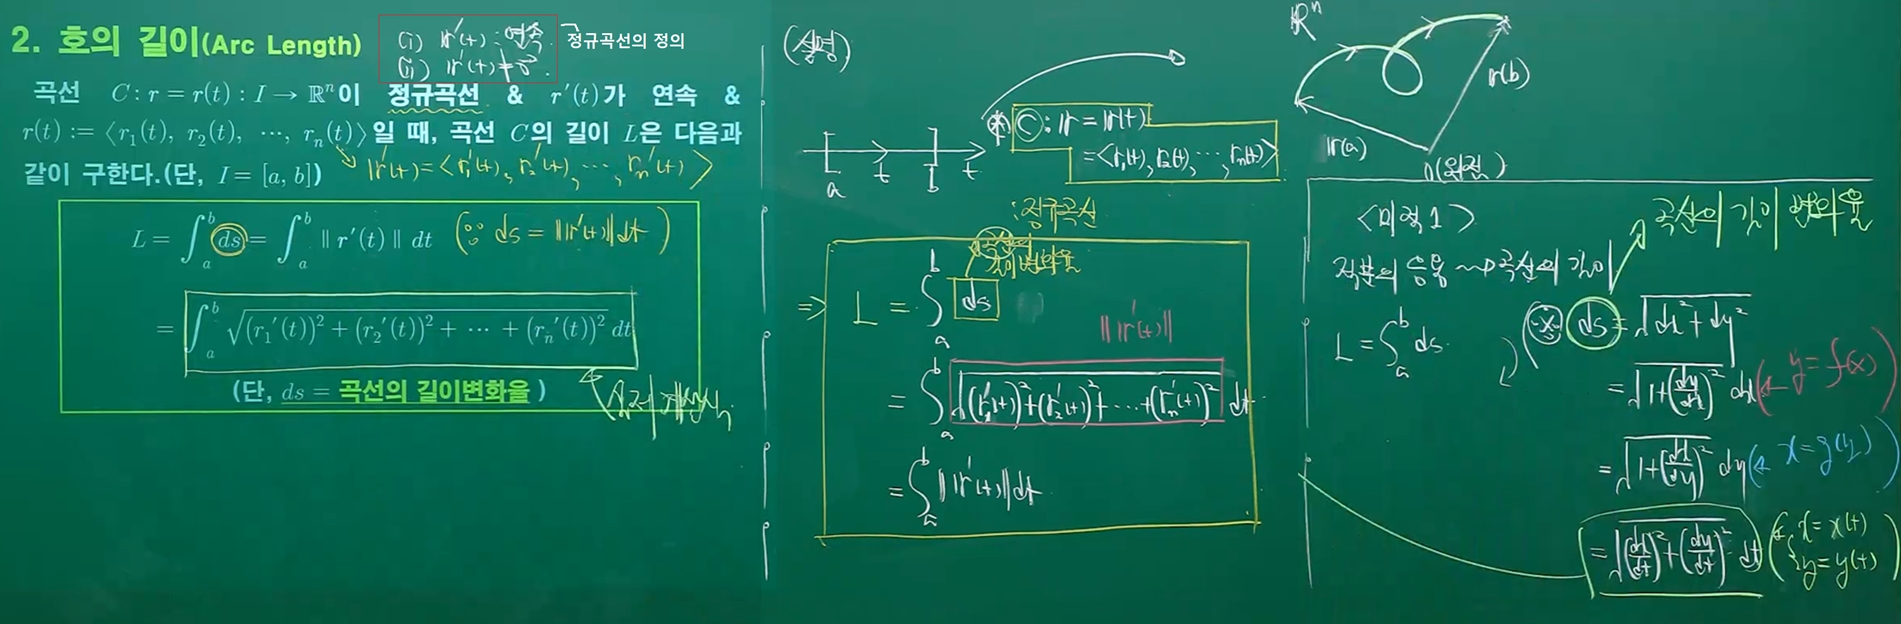 2. 호의 길이(Arc Length)
(i) r'(t) : 연속
(ii) r'(t) ≠ 0
정규곡선의 정의
곡선 C : r = r(t) : I → ℝⁿ이 정규곡선 & r'(t)가 연속 &
r(t) := ⟨r₁(t), r₂(t), ⋯, rₙ(t)⟩일 때, 곡선 C의 길이 L은 다음과
같이 구한다.(단, I = [a, b])
r'(t) = <r₁'(t), r₂'(t), ⋯, rₙ'(t)>
L = ∫ₐᵇ ds = ∫ₐᵇ ‖ r'(t) ‖ dt (∵ ds = ‖r'(t)‖dt)
= ∫ₐᵇ √((r₁'(t))² + (r₂'(t))² + ⋯ + (rₙ'(t))²) dt
(단, ds = 곡선의 길이변화율 )
(설명)
a t b t
C : r = r(t)
= <r₁(t), r₂(t), ⋯, rₙ(t)>
: 정규곡선
길이변화율
⇒ L = ∫ₐᵇ ds
‖r'(t)‖
= ∫ₐᵇ √((r₁'(t))²+(r₂'(t))²+⋯+(rₙ'(t))²) dt
= ∫ₐᵇ ‖r'(t)‖dt
ℝⁿ
r(b)
r(a)
0(원점)
<미적1>
곡선의 길이 변화율
적분의 응용 ⇝ 곡선의 길이
L = ∫ₐᵇ ds
(※ ds = √(dx²+dy²)
= √(1+(dy/dx)²) dx (← y=f(x))
= √(1+(dx/dy)²) dy (← x=g(y))
= √((dx/dt)²+(dy/dt)²) dt (← { x=x(t)
y=y(t) )